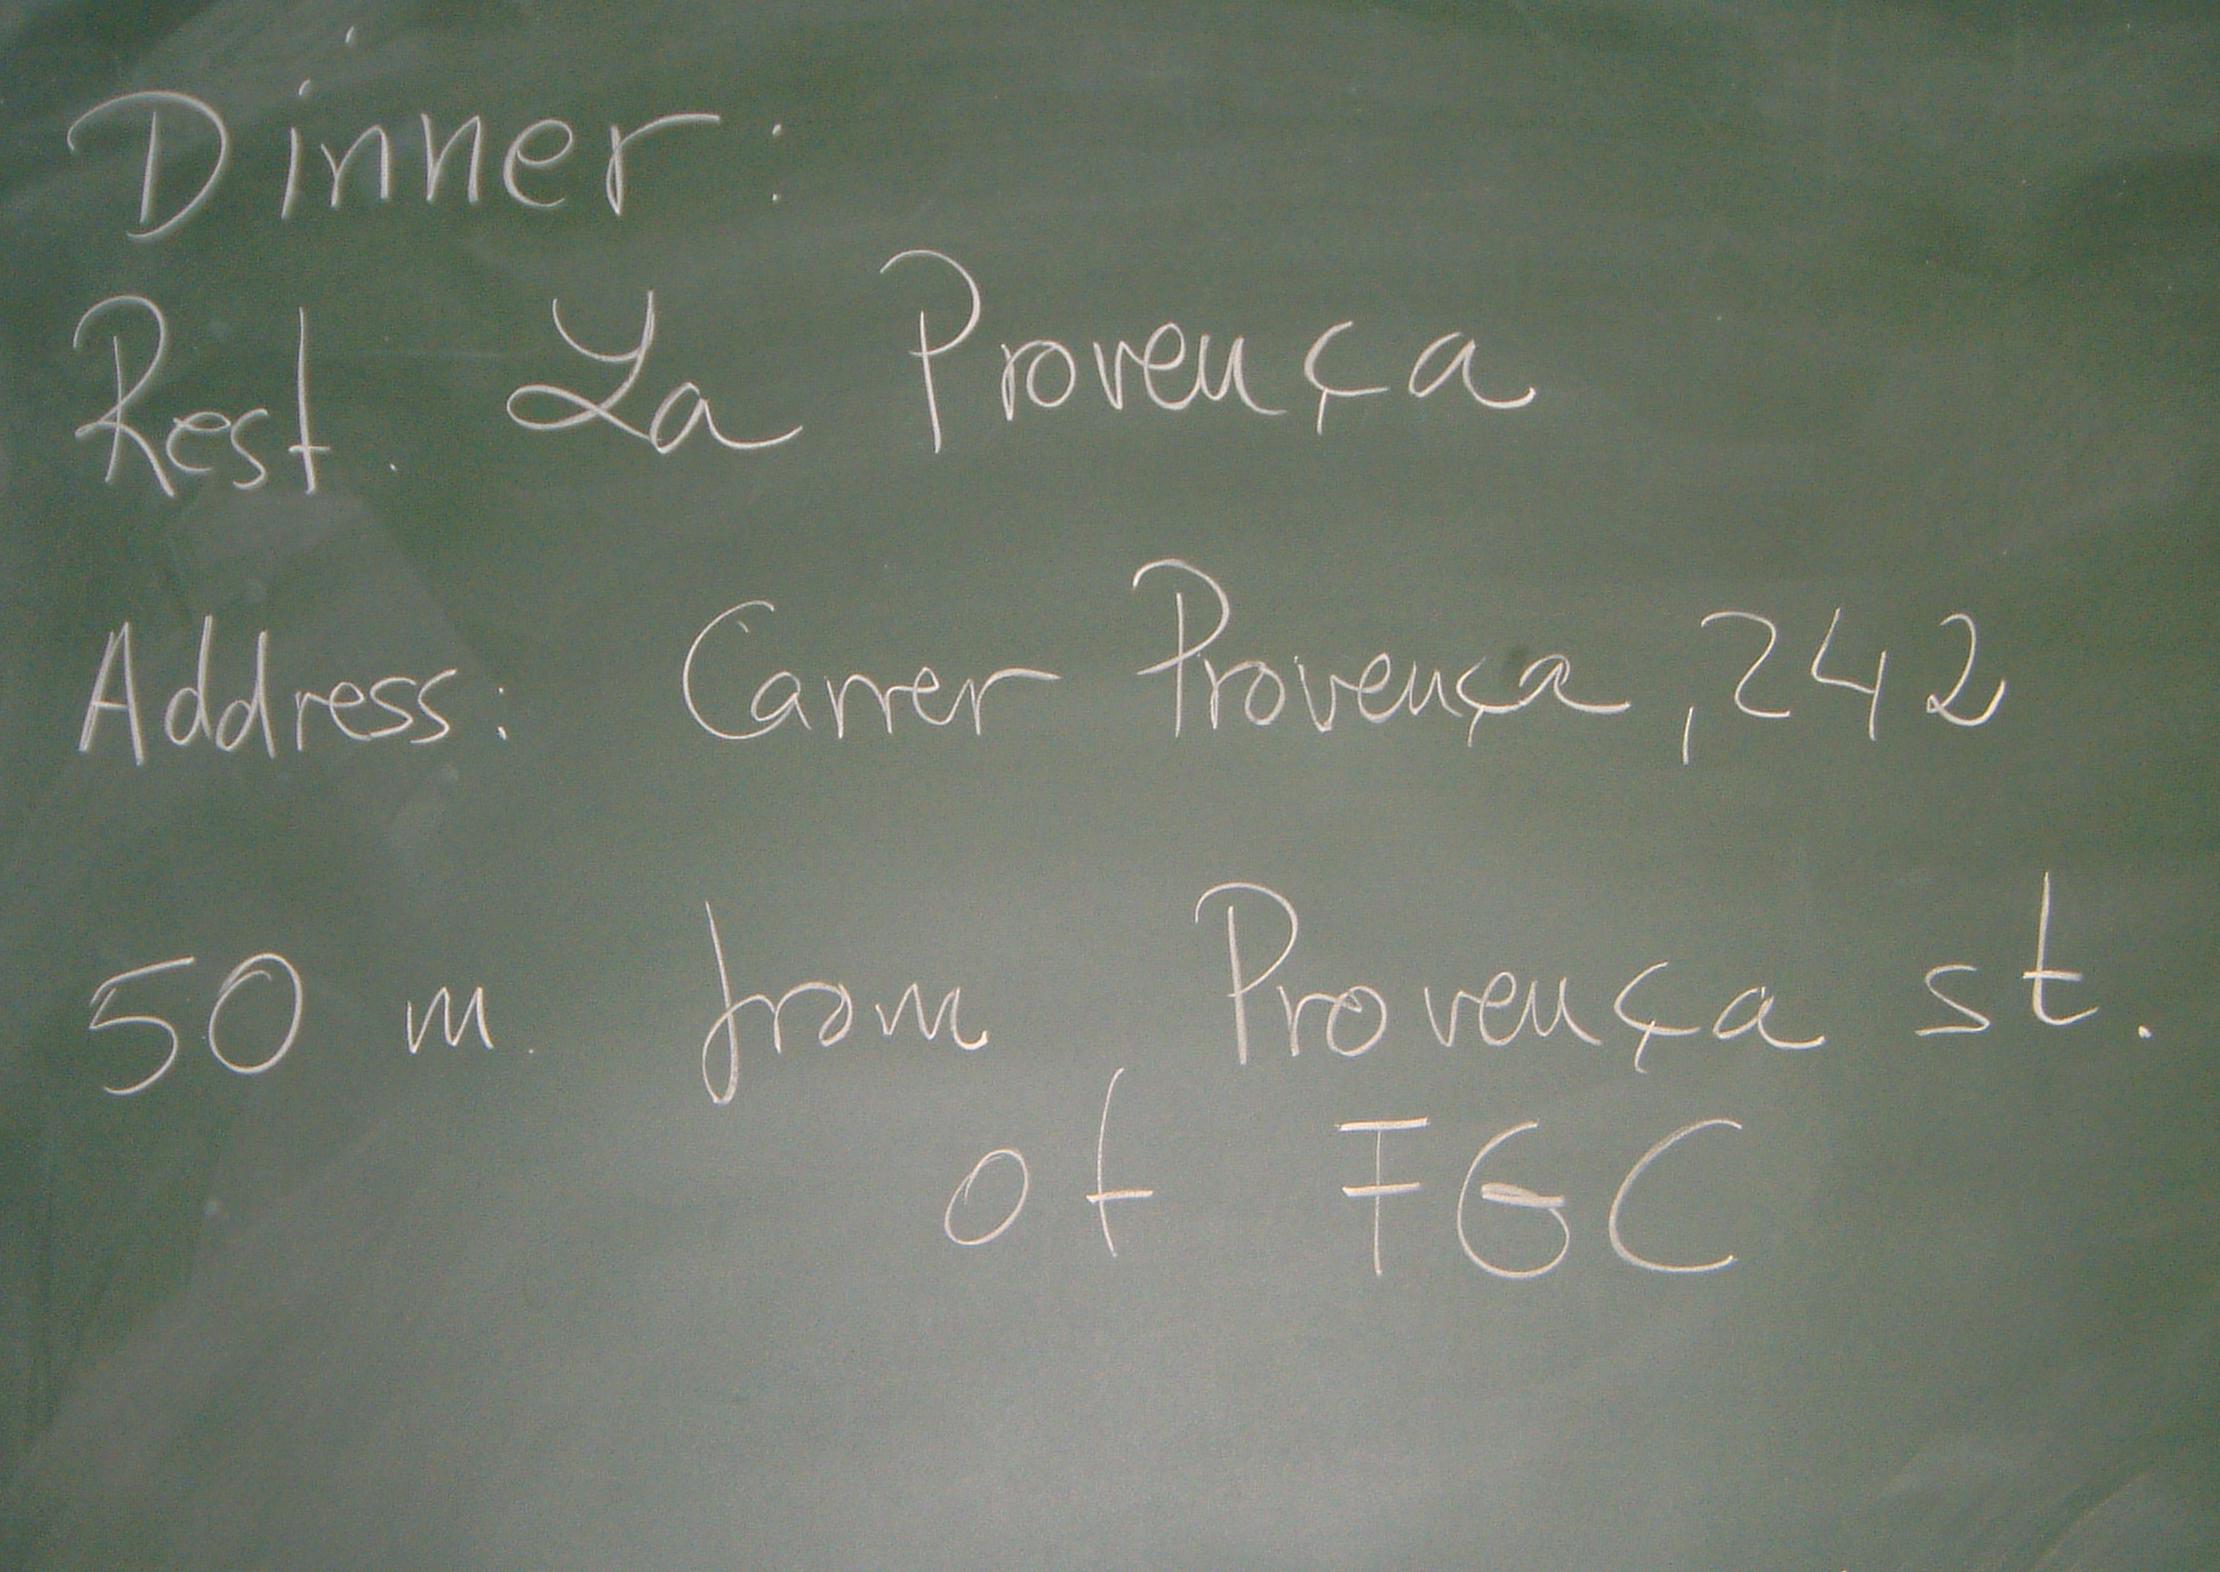 Dinner:
Rest. La Provença
Address: Carrer Provença, 242
50 m. from Provença st.
of FGC